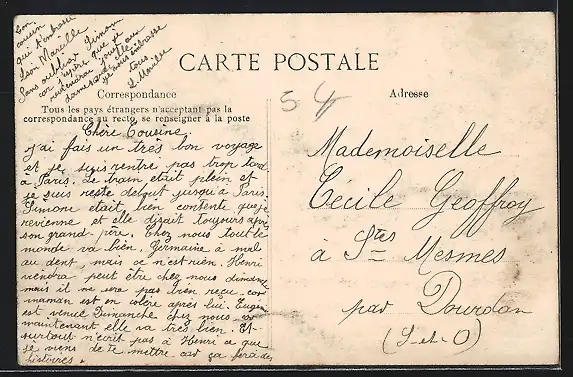 CARTE POSTALE
Correspondance
Tous les pays étrangers n'acceptant pas la
correspondance au recto, se renseigner à la poste
Adresse
54
Chère Cousine,
J'ai fais un très bon voyage
et je suis rentré pas trop tard
à Paris. Le train était plein et
je suis resté debout jusqu'à Paris.
Simone était bien contente que je
revienne et elle disait toujours après
son grand-père. Chez nous tout le
monde va bien. Germaine a mal
au dent, mais ce n'est rien. Henri
viendra peut être chez nous dimanche
mais il ne sera pas bien reçu car
maman est en colère après lui. Eugen
est venue Dimanche chez nous
maintenant elle va très bien. Et
surtout n'écrit pas à Henri ce que
je viens de te mettre car ça fera des
histoires.
Ton
cousin
qui t'embrasse
Léon Marcille
Sans oublier Simone
car j'espère que je
reviendrai
je vous embrasse
tous.
Mademoiselle
Cécile Geoffroy
à Stes Mesmes
par Dourdan
(S-et-O)